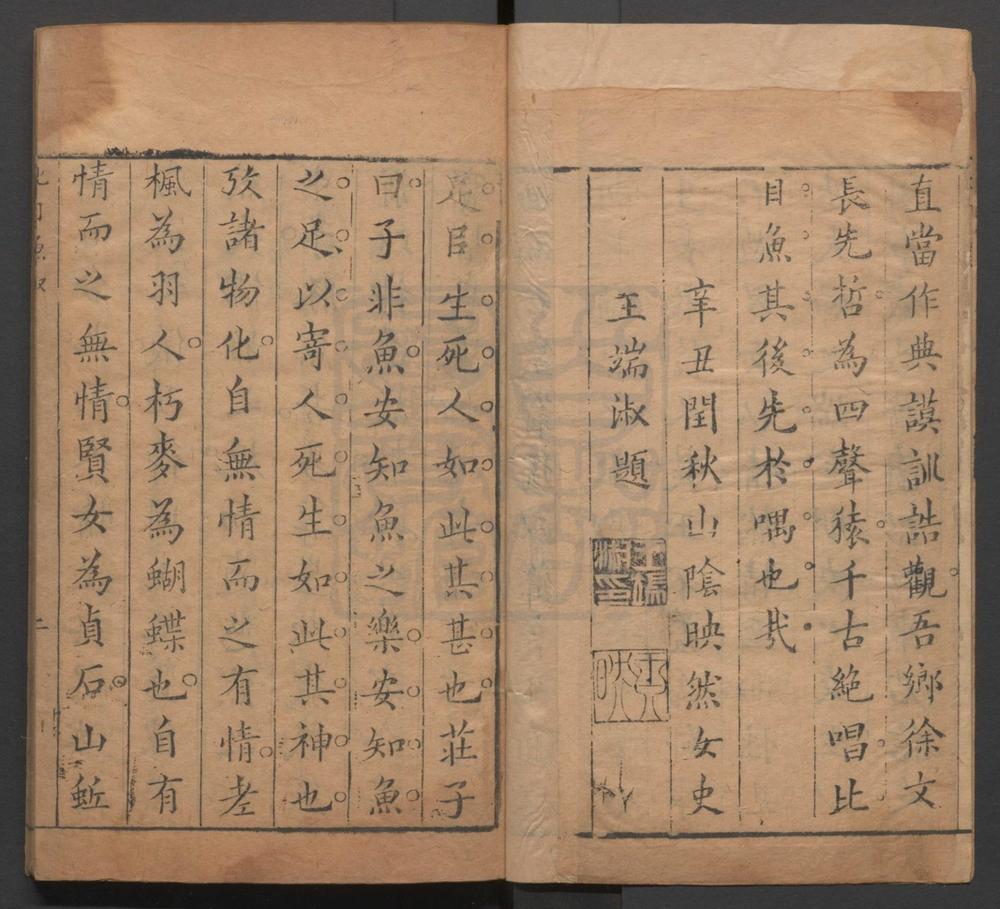 直當作典謨訓誥觀吾鄉徐文
長先哲為四聲猿千古絕唱比
目魚其後先於喁也哉
辛丑閏秋山陰映然女史
王端淑題
足自生死人如此其甚也莊子
曰子非魚安知魚之樂安知魚
之足以寄人死生如此其神也
攷諸物化自無情而之有情老
楓為羽人朽麥為蝴蝶也自有
情而之無情賢女為貞石山蚯
二